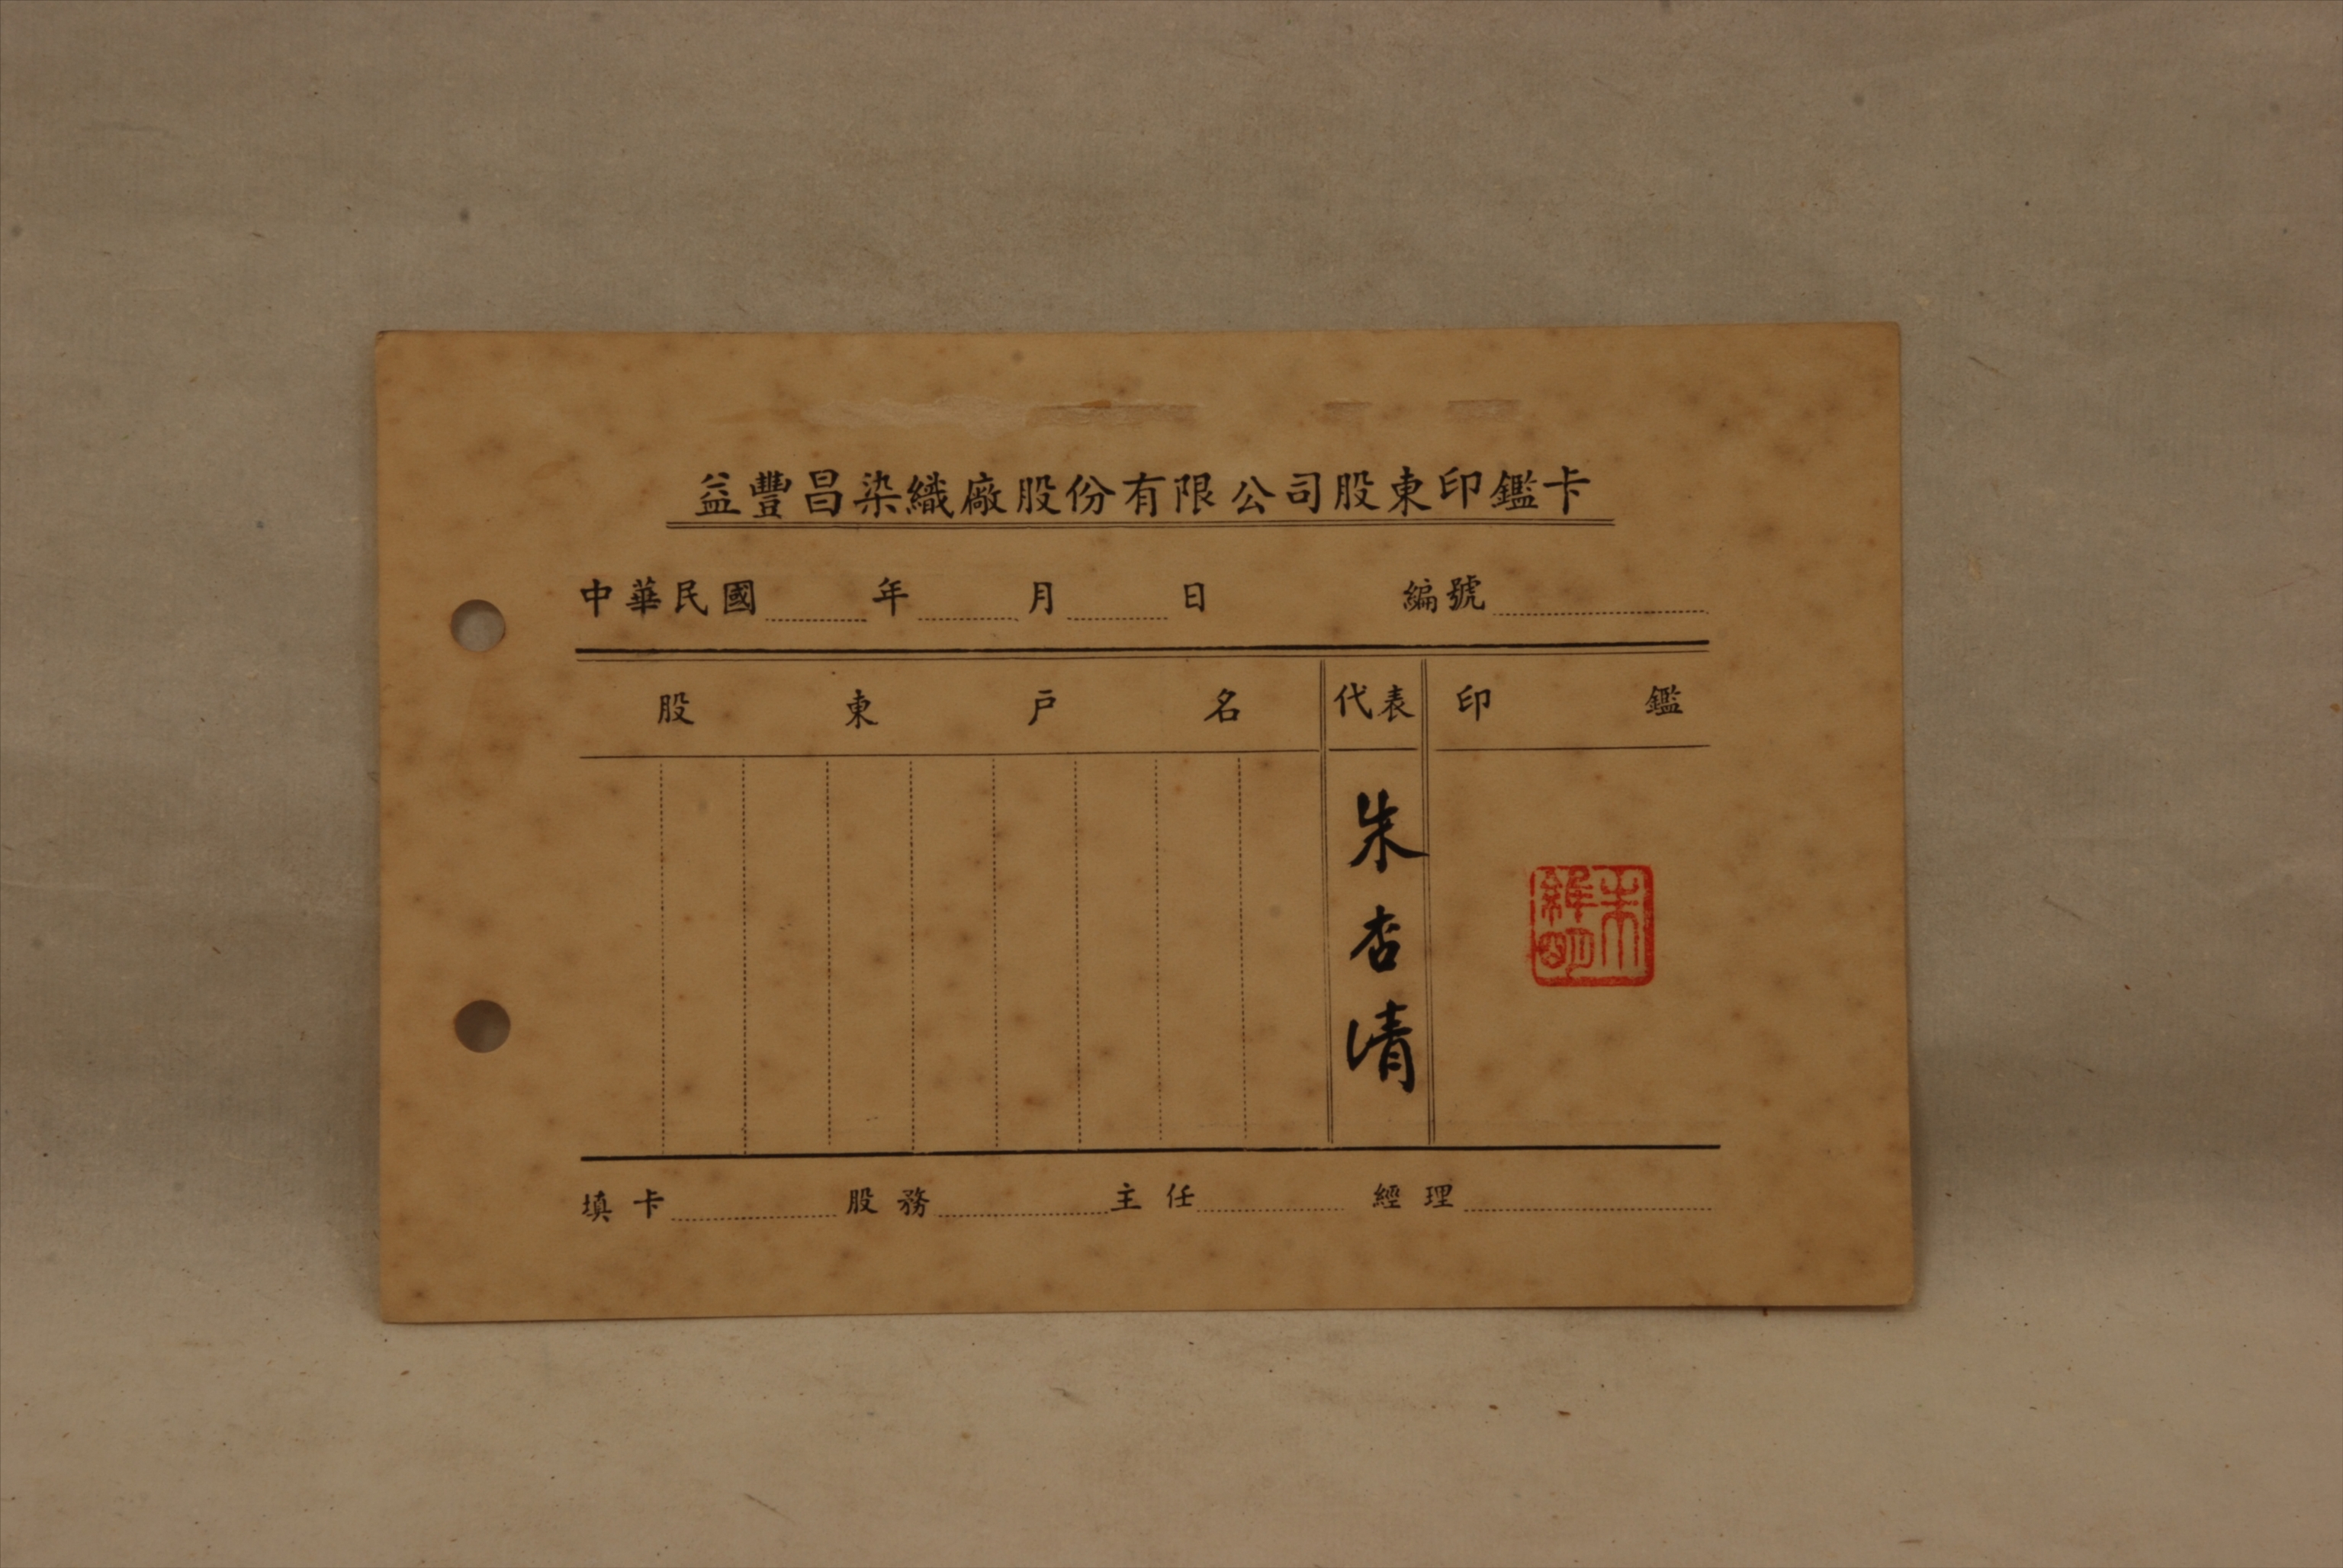 益豐昌染織廠股份有限公司股東印鑑卡
中華民國 年 月 日 編號
股東戶名 代表 印鑑
朱杏清
朱維明
填卡 股務 主任 經理